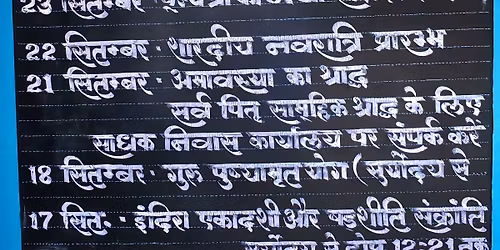 23 सितम्बर
22 सितम्बर - शारदीय नवरात्रि प्रारम्भ
21 सितम्बर - अमावस्या का श्राद्ध
सर्व पितृ सामूहिक श्राद्ध के लिए
साधक निवास कार्यालय पर संपर्क करें
18 सितम्बर - गुरु पुष्यामृत योग (सुर्योदय से
17 सित. - इंदिरा एकादशी और षडशीति संक्रांति